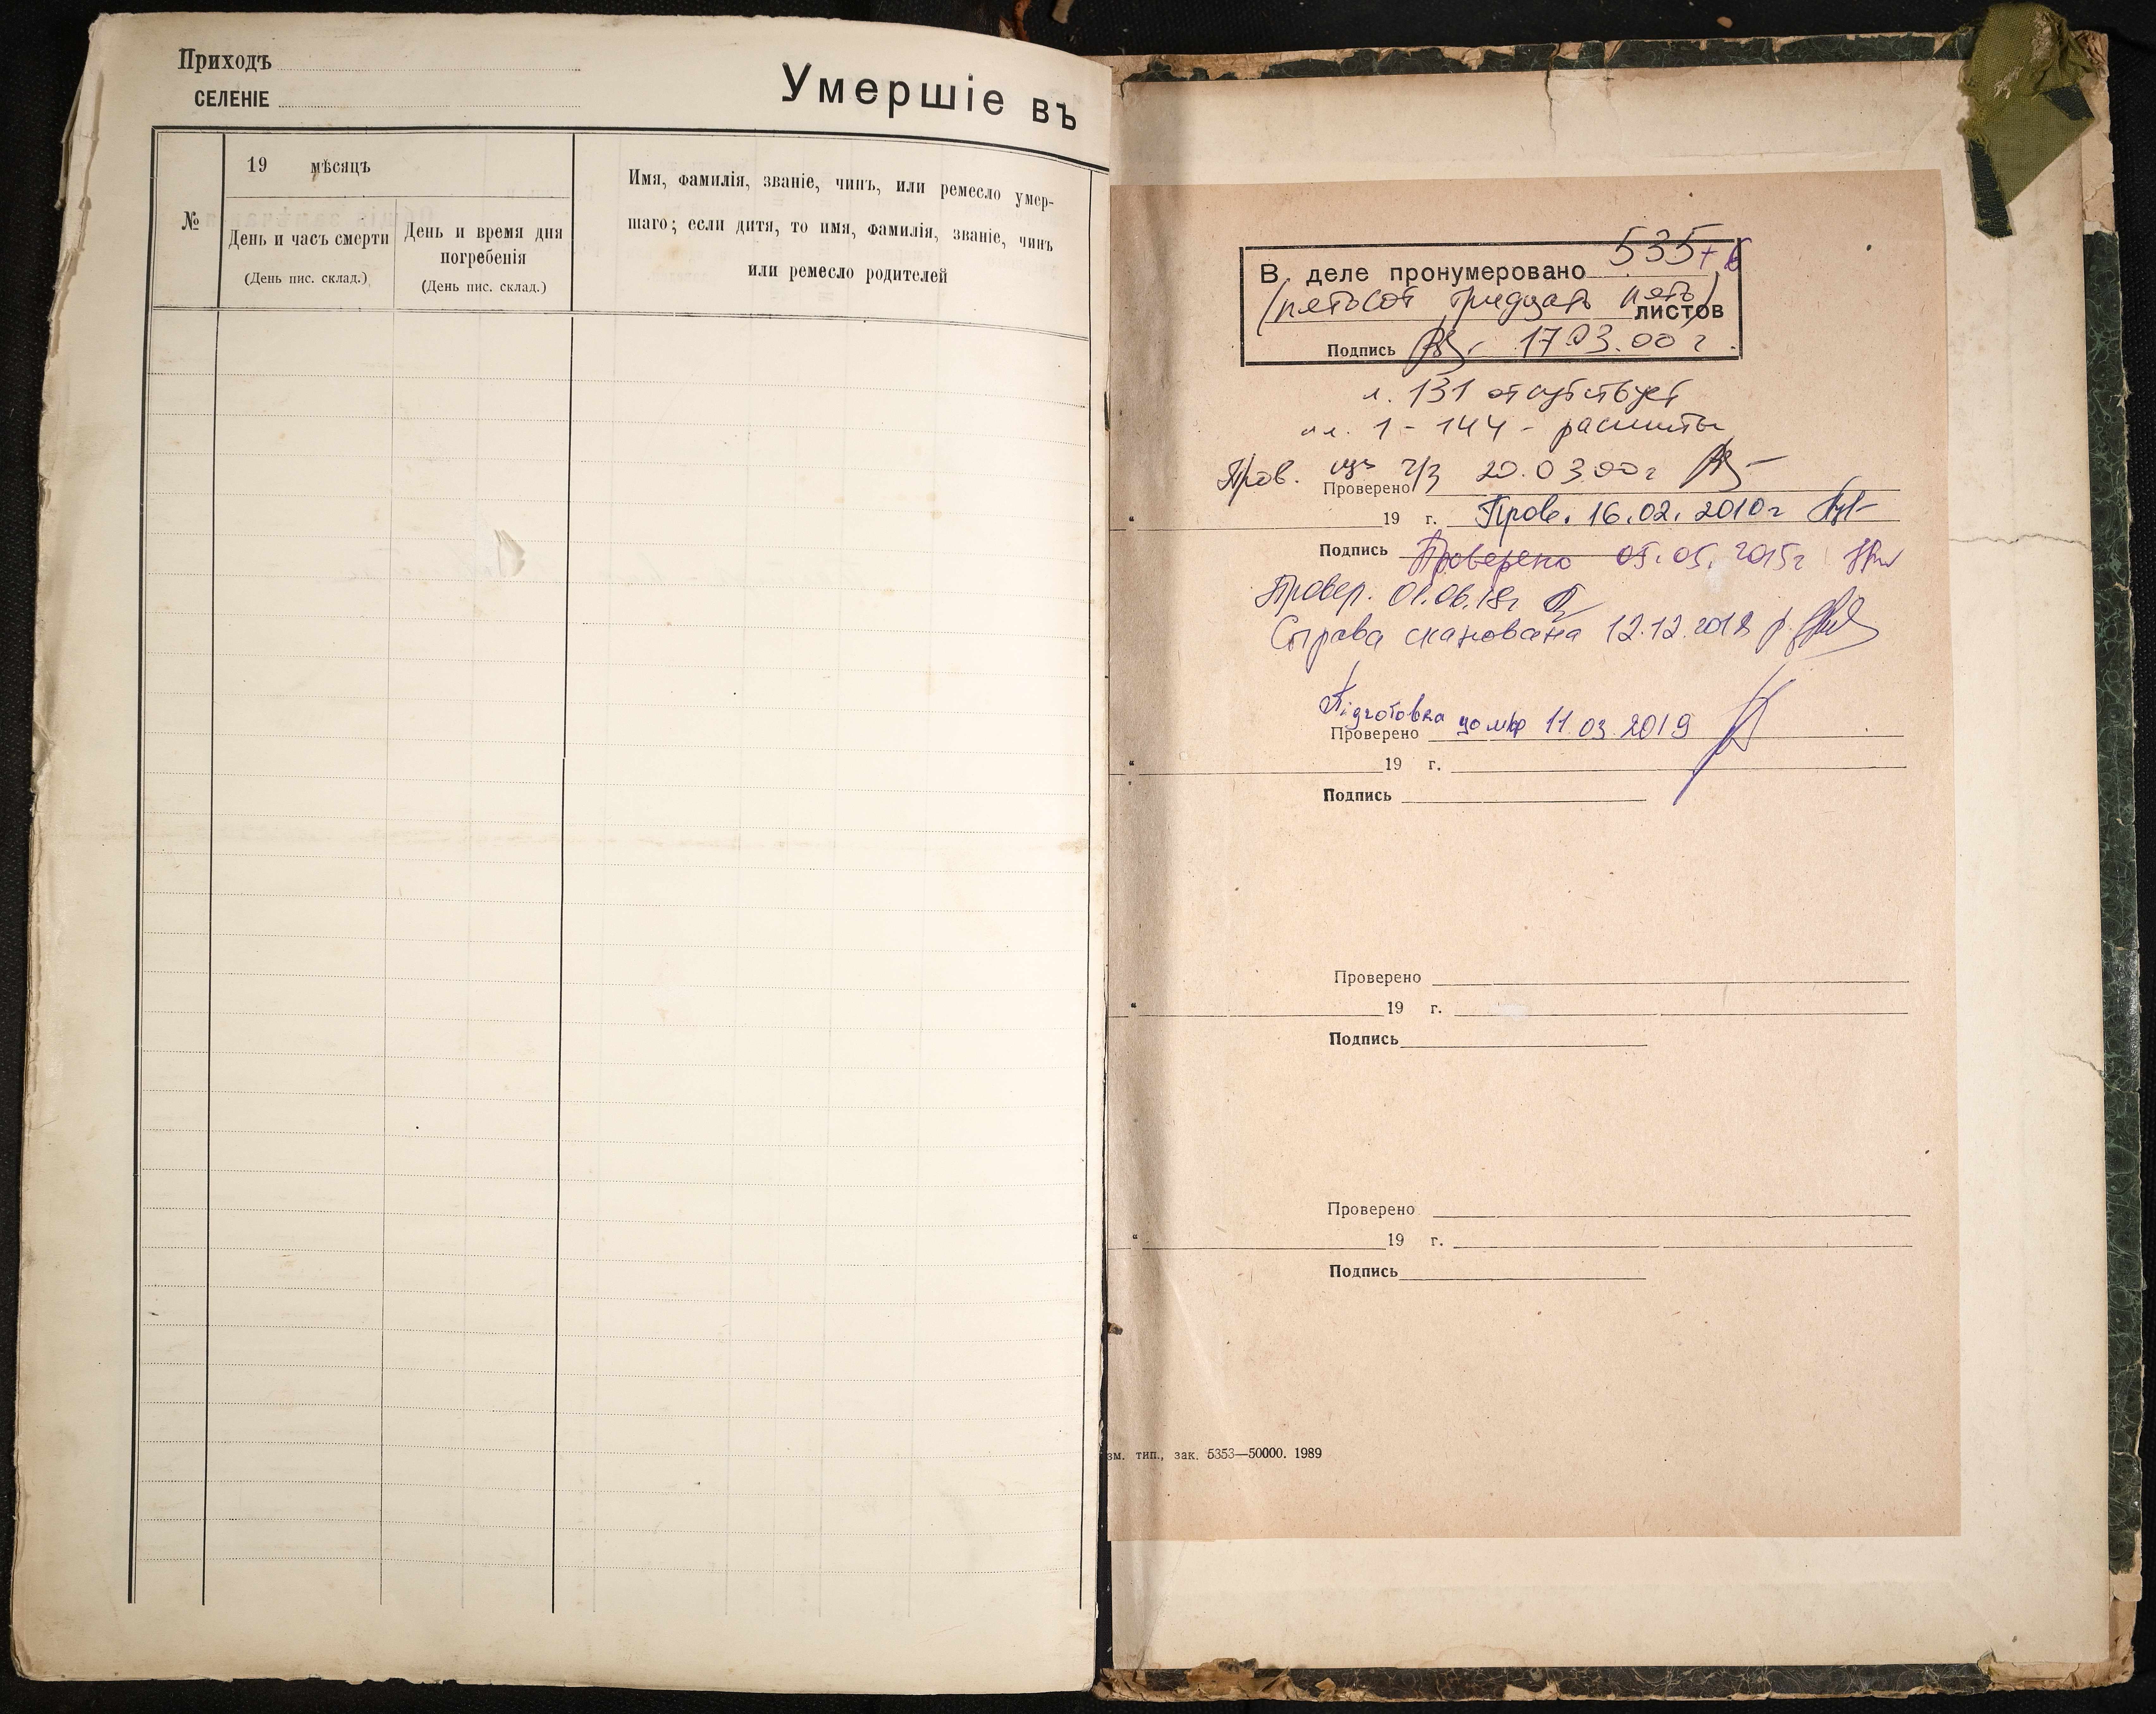 Приходъ
СЕЛЕНІЕ
Умершіе въ
№
19 мѣсяцъ
День и часъ смерти
(День пис. склад.)
День и время дня
погребенія
(День пис. склад.)
Имя, фамилія, званіе, чинъ, или ремесло умер-
шаго; если дитя, то имя, фамилія, званіе, чинъ
или ремесло родителей
В деле пронумеровано 535+6
(пятьсот тридцать пять)
листов
Подпись 17.03.00 г.
л. 131 отсутствует
лл. 1-144 - расшиты
Пров. ч/з 20.03.00г
Проверено
" 19 г. Пров. 16.02.2010г
Подпись Проверено 05.05.2015г
Провер. 01.06.18г
Справа сканована 12.12.2018 р.
Підготовка до мкф 11.03.2019
Проверено
" 19 г.
Подпись
Проверено
" 19 г.
Подпись
Проверено
" 19 г.
Подпись
зм. тип., зак. 5353—50000. 1989